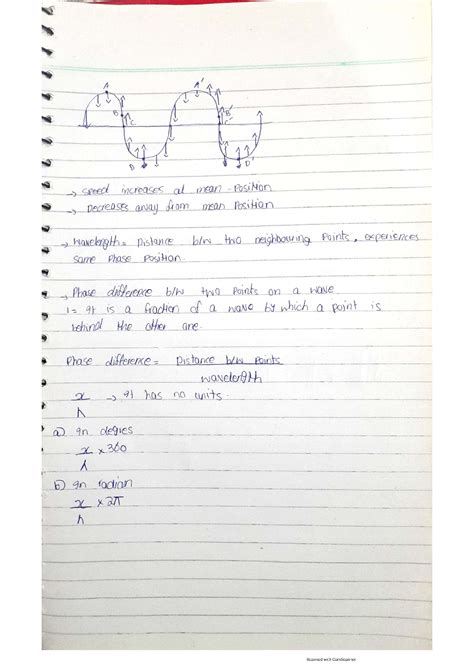 A A'
B B'
C C'
D D'
→ speed increases at mean-Position
→ Decreases away from mean Position
→ Wavelength = Distance b/w two neighbouring Points, experiences
same Phase Position.
→ Phase difference b/w two Points on a wave.
1= It is a fraction of a wave by which a point is
behind the other one.
Phase difference = Distance b/w Points
wavelength
x → It has no units.
λ
a) In degres
x × 360
λ
b) In radian
x × 2π
λ
Scanned with CamScanner